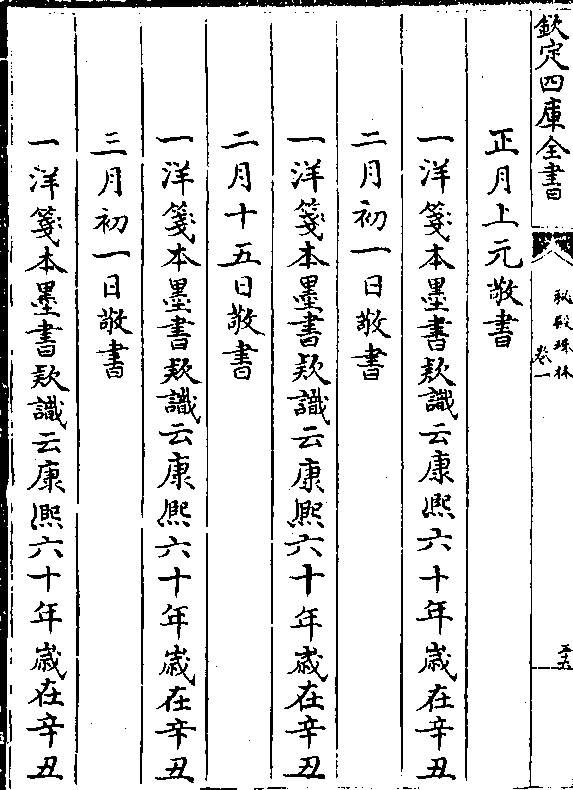 欽定四庫全書
秘殿珠林
卷一
五十五
正月上元敬書
一洋箋本墨書款識云康熙六十年歳在辛丑
二月初一日敬書
一洋箋本墨書款識云康熙六十年歳在辛丑
二月十五日敬書
一洋箋本墨書款識云康熙六十年歳在辛丑
三月初一日敬書
一洋箋本墨書款識云康熙六十年歳在辛丑